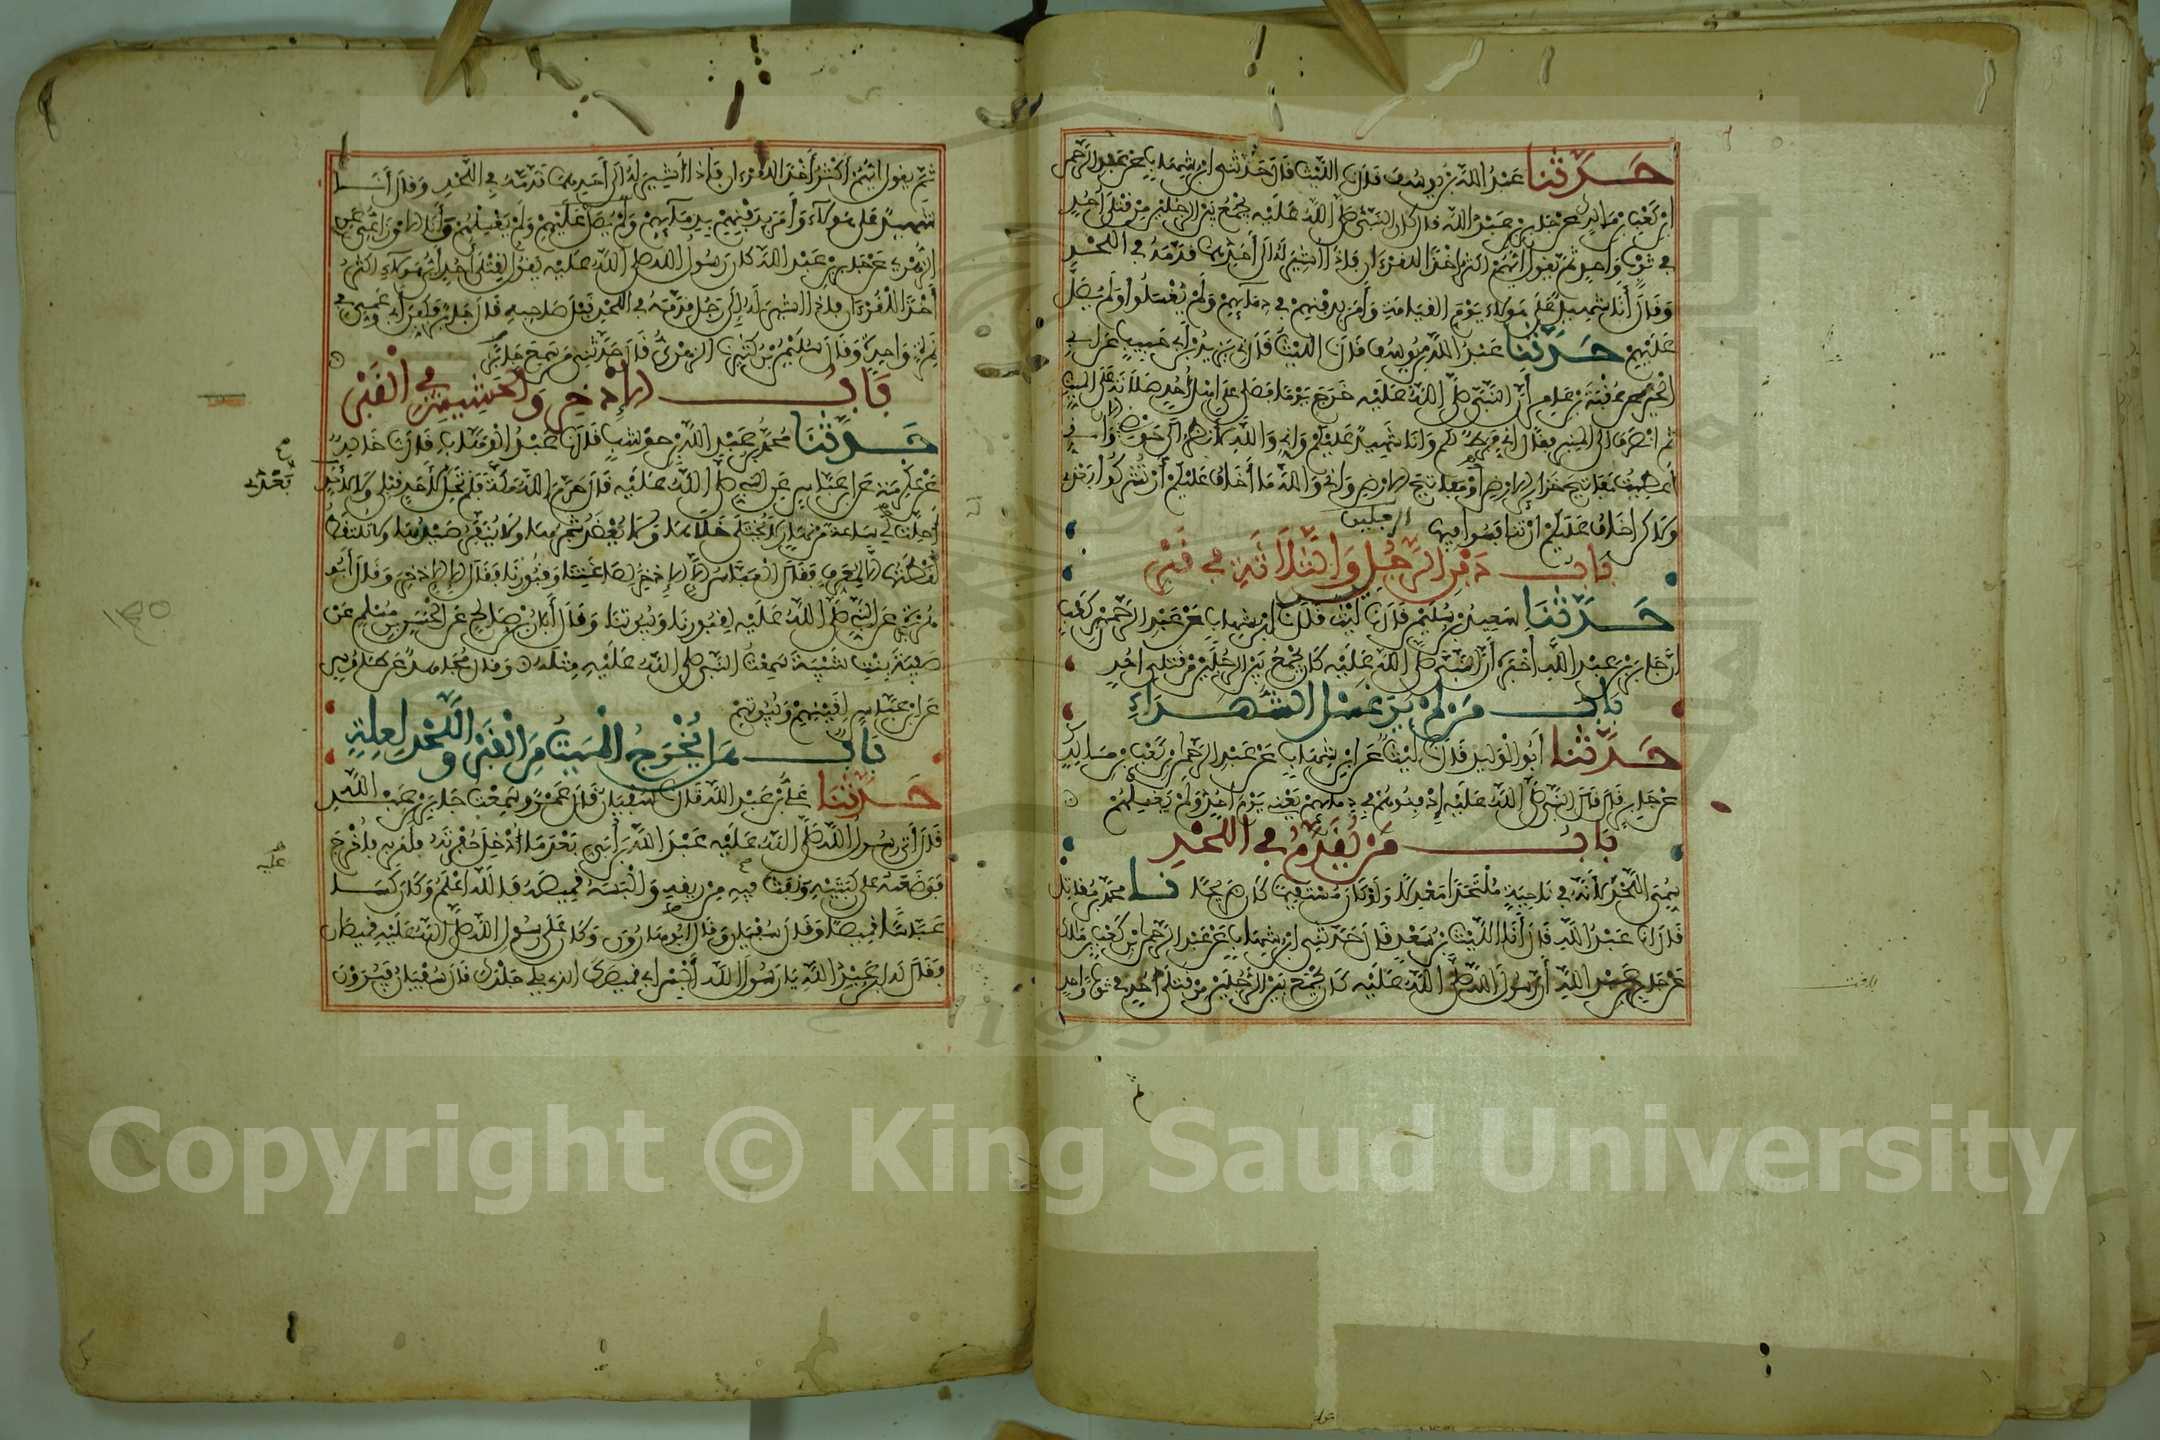 حَدَّثَنَا عَبْدُ اللَّه بْنُ يُوسُفَ قَالَ نَا اللَّيْثُ قَالَ حَدَّثَنِي ابْنُ شِهَابٍ عَنْ عَبْدِ الرَّحْمَنِ
ابْنِ كَعْبِ بْنِ مَالِكٍ عَنْ جَابِرِ بْنِ عَبْدِ اللَّه قَالَ كَانَ النَّبِيُّ صَلَّى اللَّهُ عَلَيْهِ يَجْمَعُ بَيْنَ الرَّجُلَيْنِ مِنْ قَتْلَى أُحُدٍ
فِي ثَوْبٍ وَاحِدٍ ثُمَّ يَقُولُ أَيُّهُمْ أَكْثَرُ أَخْذًا لِلْقُرْءَانِ فَإِذَا أُشِيرَ لَهُ إِلَى أَحَدِهِمَا قَدَّمَهُ فِي اللَّحْدِ
وَقَالَ أَنَا شَهِيدٌ عَلَى هَؤُلَاءِ يَوْمَ الْقِيَامَةِ وَأَمَرَ بِدَفْنِهِمْ فِي دِمَائِهِمْ وَلَمْ يُغْسَلُوا وَلَمْ يُصَلَّ
عَلَيْهِمْ حَدَّثَنَا عَبْدُ اللَّه بْنُ يُوسُفَ قَالَ نَا اللَّيْثُ قَالَ نِي يَزِيدُ بْنُ أَبِي حَبِيبٍ عَنْ أَبِي
الْخَيْرِ عَنْ عُقْبَةَ بْنِ عَامِرٍ أَنَّ النَّبِيَّ صَلَّى اللَّهُ عَلَيْهِ خَرَجَ يَوْمًا فَصَلَّى عَلَى أَهْلِ أُحُدٍ صَلَاتَهُ عَلَى الْمَيِّتِ
ثُمَّ انْصَرَفَ إِلَى الْمِنْبَرِ فَقَالَ إِنِّي فَرَطٌ لَكُمْ وَأَنَا شَهِيدٌ عَلَيْكُمْ وَإِنِّي وَاللَّهِ لَأَنْظُرُ إِلَى حَوْضِي الْآنَ وَإِنِّي
أُعْطِيتُ مَفَاتِيحَ خَزَائِنِ الْأَرْضِ أَوْ مَفَاتِيحَ الْأَرْضِ وَإِنِّي وَاللَّهِ مَا أَخَافُ عَلَيْكُمْ أَنْ تُشْرِكُوا بَعْدِي
وَلَاكِنْ أَخَافُ عَلَيْكُمْ أَنْ تَنَافَسُوا فِيهَا
بَابُ دَفْنِ الرَّجُلَيْنِ وَالثَّلَاثَةِ فِي قَبْرٍ
حَدَّثَنَا سَعِيدُ بْنُ سُلَيْمَنَ قَالَ نَا لَيْثٌ قَالَ نَا ابْنُ شِهَابٍ عَنْ عَبْدِ الرَّحْمَنِ بْنِ كَعْبٍ
أَنَّ جَابِرَ بْنَ عَبْدِ اللَّهِ أَخْبَرَهُ أَنَّ النَّبِيَّ صَلَّى اللَّهُ عَلَيْهِ كَانَ يَجْمَعُ بَيْنَ الرَّجُلَيْنِ مِنْ قَتْلَى أُحُدٍ
بَابُ مَنْ لَمْ يَرَ غَسْلَ الشُّهَدَاءِ
حَدَّثَنَا أَبُو الْوَلِيدِ قَالَ نَا لَيْثٌ عَنِ ابْنِ شِهَابٍ عَنْ عَبْدِ الرَّحْمَنِ بْنِ كَعْبِ بْنِ مَالِكٍ
عَنْ جَابِرٍ قَالَ قَالَ النَّبِيُّ صَلَّى اللَّهُ عَلَيْهِ ادْفِنُوهُمْ فِي دِمَائِهِمْ يَعْنِي يَوْمَ أُحُدٍ وَلَمْ يَغْسِلْهُمْ
بَابُ مَنْ يُقَدَّمُ فِي اللَّحْدِ
سُمِّيَ اللَّحْدَ لِأَنَّهُ فِي نَاحِيَةٍ مُلْتَحَدًا مَعْدِلًا وَلَوْ كَانَ مُسْتَقِيمًا كَانَ ضَرِيحًا نَا مُحَمَّدُ بْنُ مُقَاتِلٍ
قَالَ نَا عَبْدُ اللَّهِ قَالَ أَنَا اللَّيْثُ بْنُ سَعْدٍ قَالَ حَدَّثَنِي ابْنُ شِهَابٍ عَنْ عَبْدِ الرَّحْمَنِ بْنِ كَعْبِ بْنِ مَالِكٍ
عَنْ جَابِرِ بْنِ عَبْدِ اللَّهِ أَنَّ رَسُولَ اللَّهِ صَلَّى اللَّهُ عَلَيْهِ كَانَ يَجْمَعُ بَيْنَ الرَّجُلَيْنِ مِنْ قَتْلَى أُحُدٍ فِي ثَوْبٍ وَاحِدٍ
ثُمَّ يَقُولُ أَيُّهُمْ أَكْثَرُ أَخْذًا لِلْقُرْءَانِ فَإِذَا أُشِيرَ لَهُ إِلَى أَحَدِهِمَا قَدَّمَهُ فِي اللَّحْدِ وَقَالَ أَنَا
شَهِيدٌ عَلَى هَؤُلَاءِ وَأَمَرَ بِدَفْنِهِمْ بِدِمَائِهِمْ وَلَمْ يُصَلِّ عَلَيْهِمْ وَلَمْ يُغَسِّلْهُمْ وَأَنَا الْأَوْزَاعِيُّ عَنِ
الزُّهْرِيِّ عَنْ جَابِرِ بْنِ عَبْدِ اللَّهِ كَانَ رَسُولُ اللَّهِ صَلَّى اللَّهُ عَلَيْهِ يَقُولُ لِقَتْلَى أُحُدٍ أَيُّ هَؤُلَاءِ أَكْثَرُ
أَخْذًا لِلْقُرْءَانِ فَإِذَا أُشِيرَ لَهُ إِلَى رَجُلٍ قَدَّمَهُ فِي اللَّحْدِ قَبْلَ صَاحِبِهِ قَالَ جَابِرٌ فَكُفِّنَ أَبِي وَعَمِّي فِي
نَمِرَةٍ وَاحِدَةٍ وَقَالَ سُلَيْمَنُ بْنُ كَثِيرٍ نَا الزُّهْرِيُّ قَالَ حَدَّثَنِي مَنْ سَمِعَ جَابِرًا
بَابُ الْإِذْخِرِ وَالْحَشِيشِ فِي الْقَبْرِ
حَدَّثَنَا مُحَمَّدُ بْنُ عَبْدِ اللَّهِ بْنِ حَوْشَبٍ قَالَ نَا عَبْدُ الْوَهَّابِ قَالَ نَا خَالِدٌ
عَنْ عِكْرِمَةَ عَنِ ابْنِ عَبَّاسٍ عَنِ النَّبِيِّ صَلَّى اللَّهُ عَلَيْهِ قَالَ حَرَّمَ اللَّهُ مَكَّةَ فَلَمْ تَحِلَّ لِأَحَدٍ قَبْلِي وَلَا لِأَحَدٍ
بَعْدِي
أُحِلَّتْ لِي سَاعَةً مِنْ نَهَارٍ لَا يُخْتَلَى خَلَاهَا وَلَا يُعْضَدُ شَجَرُهَا وَلَا يُنَفَّرُ صَيْدُهَا وَلَا تُلْتَقَطُ
لُقَطَتُهَا إِلَّا لِمُعَرِّفٍ فَقَالَ الْعَبَّاسُ إِلَّا الْإِذْخِرَ لِصَاغَتِنَا وَقُبُورِنَا فَقَالَ إِلَّا الْإِذْخِرَ وَقَالَ أَبُو
هُرَيْرَةَ عَنِ النَّبِيِّ صَلَّى اللَّهُ عَلَيْهِ لِقُبُورِنَا وَبُيُوتِنَا وَقَالَ أَبَانُ بْنُ صَالِحٍ عَنِ الْحَسَنِ بْنِ مُسْلِمٍ عَنْ
صَفِيَّةَ بِنْتِ شَيْبَةَ سَمِعْتُ النَّبِيَّ صَلَّى اللَّهُ عَلَيْهِ مِثْلَهُ وَقَالَ مُجَاهِدٌ عَنْ طَاوُسٍ
عَنِ ابْنِ عَبَّاسٍ لِقَيْنِهِمْ وَبُيُوتِهِمْ
بَابُ هَلْ يُخْرَجُ الْمَيِّتُ مِنَ الْقَبْرِ وَاللَّحْدِ لِعِلَّةٍ
حَدَّثَنَا عَلِيُّ بْنُ عَبْدِ اللَّهِ قَالَ نَا سُفْيَانُ قَالَ عَمْرٌو سَمِعْتُ جَابِرَ بْنَ عَبْدِ اللَّهِ
قَالَ أَتَى رَسُولُ اللَّهِ صَلَّى اللَّهُ عَلَيْهِ عَبْدَ اللَّهِ بْنَ أُبَيٍّ بَعْدَ مَا أُدْخِلَ حُفْرَتَهُ فَأَمَرَ بِهِ فَأُخْرِجَ
فَوَضَعَهُ عَلَى رُكْبَتَيْهِ وَنَفَثَ فِيهِ مِنْ رِيقِهِ وَأَلْبَسَهُ قَمِيصَهُ فَاللَّهُ أَعْلَمُ وَكَانَ كَسَا
عَبَّاسًا قَمِيصًا وَقَالَ سُفْيَانُ وَقَالَ أَبُو هَارُونَ وَكَانَ عَلَى رَسُولِ اللَّهِ صَلَّى اللَّهُ عَلَيْهِ قَمِيصَانِ
فَقَالَ لَهُ ابْنُ عَبْدِ اللَّهِ يَا رَسُولَ اللَّهِ أَلْبِسْ أَبِي قَمِيصَكَ الَّذِي يَلِي جِلْدَكَ قَالَ سُفْيَانُ فَيَرَوْنَ
Copyright © King Saud University
1957